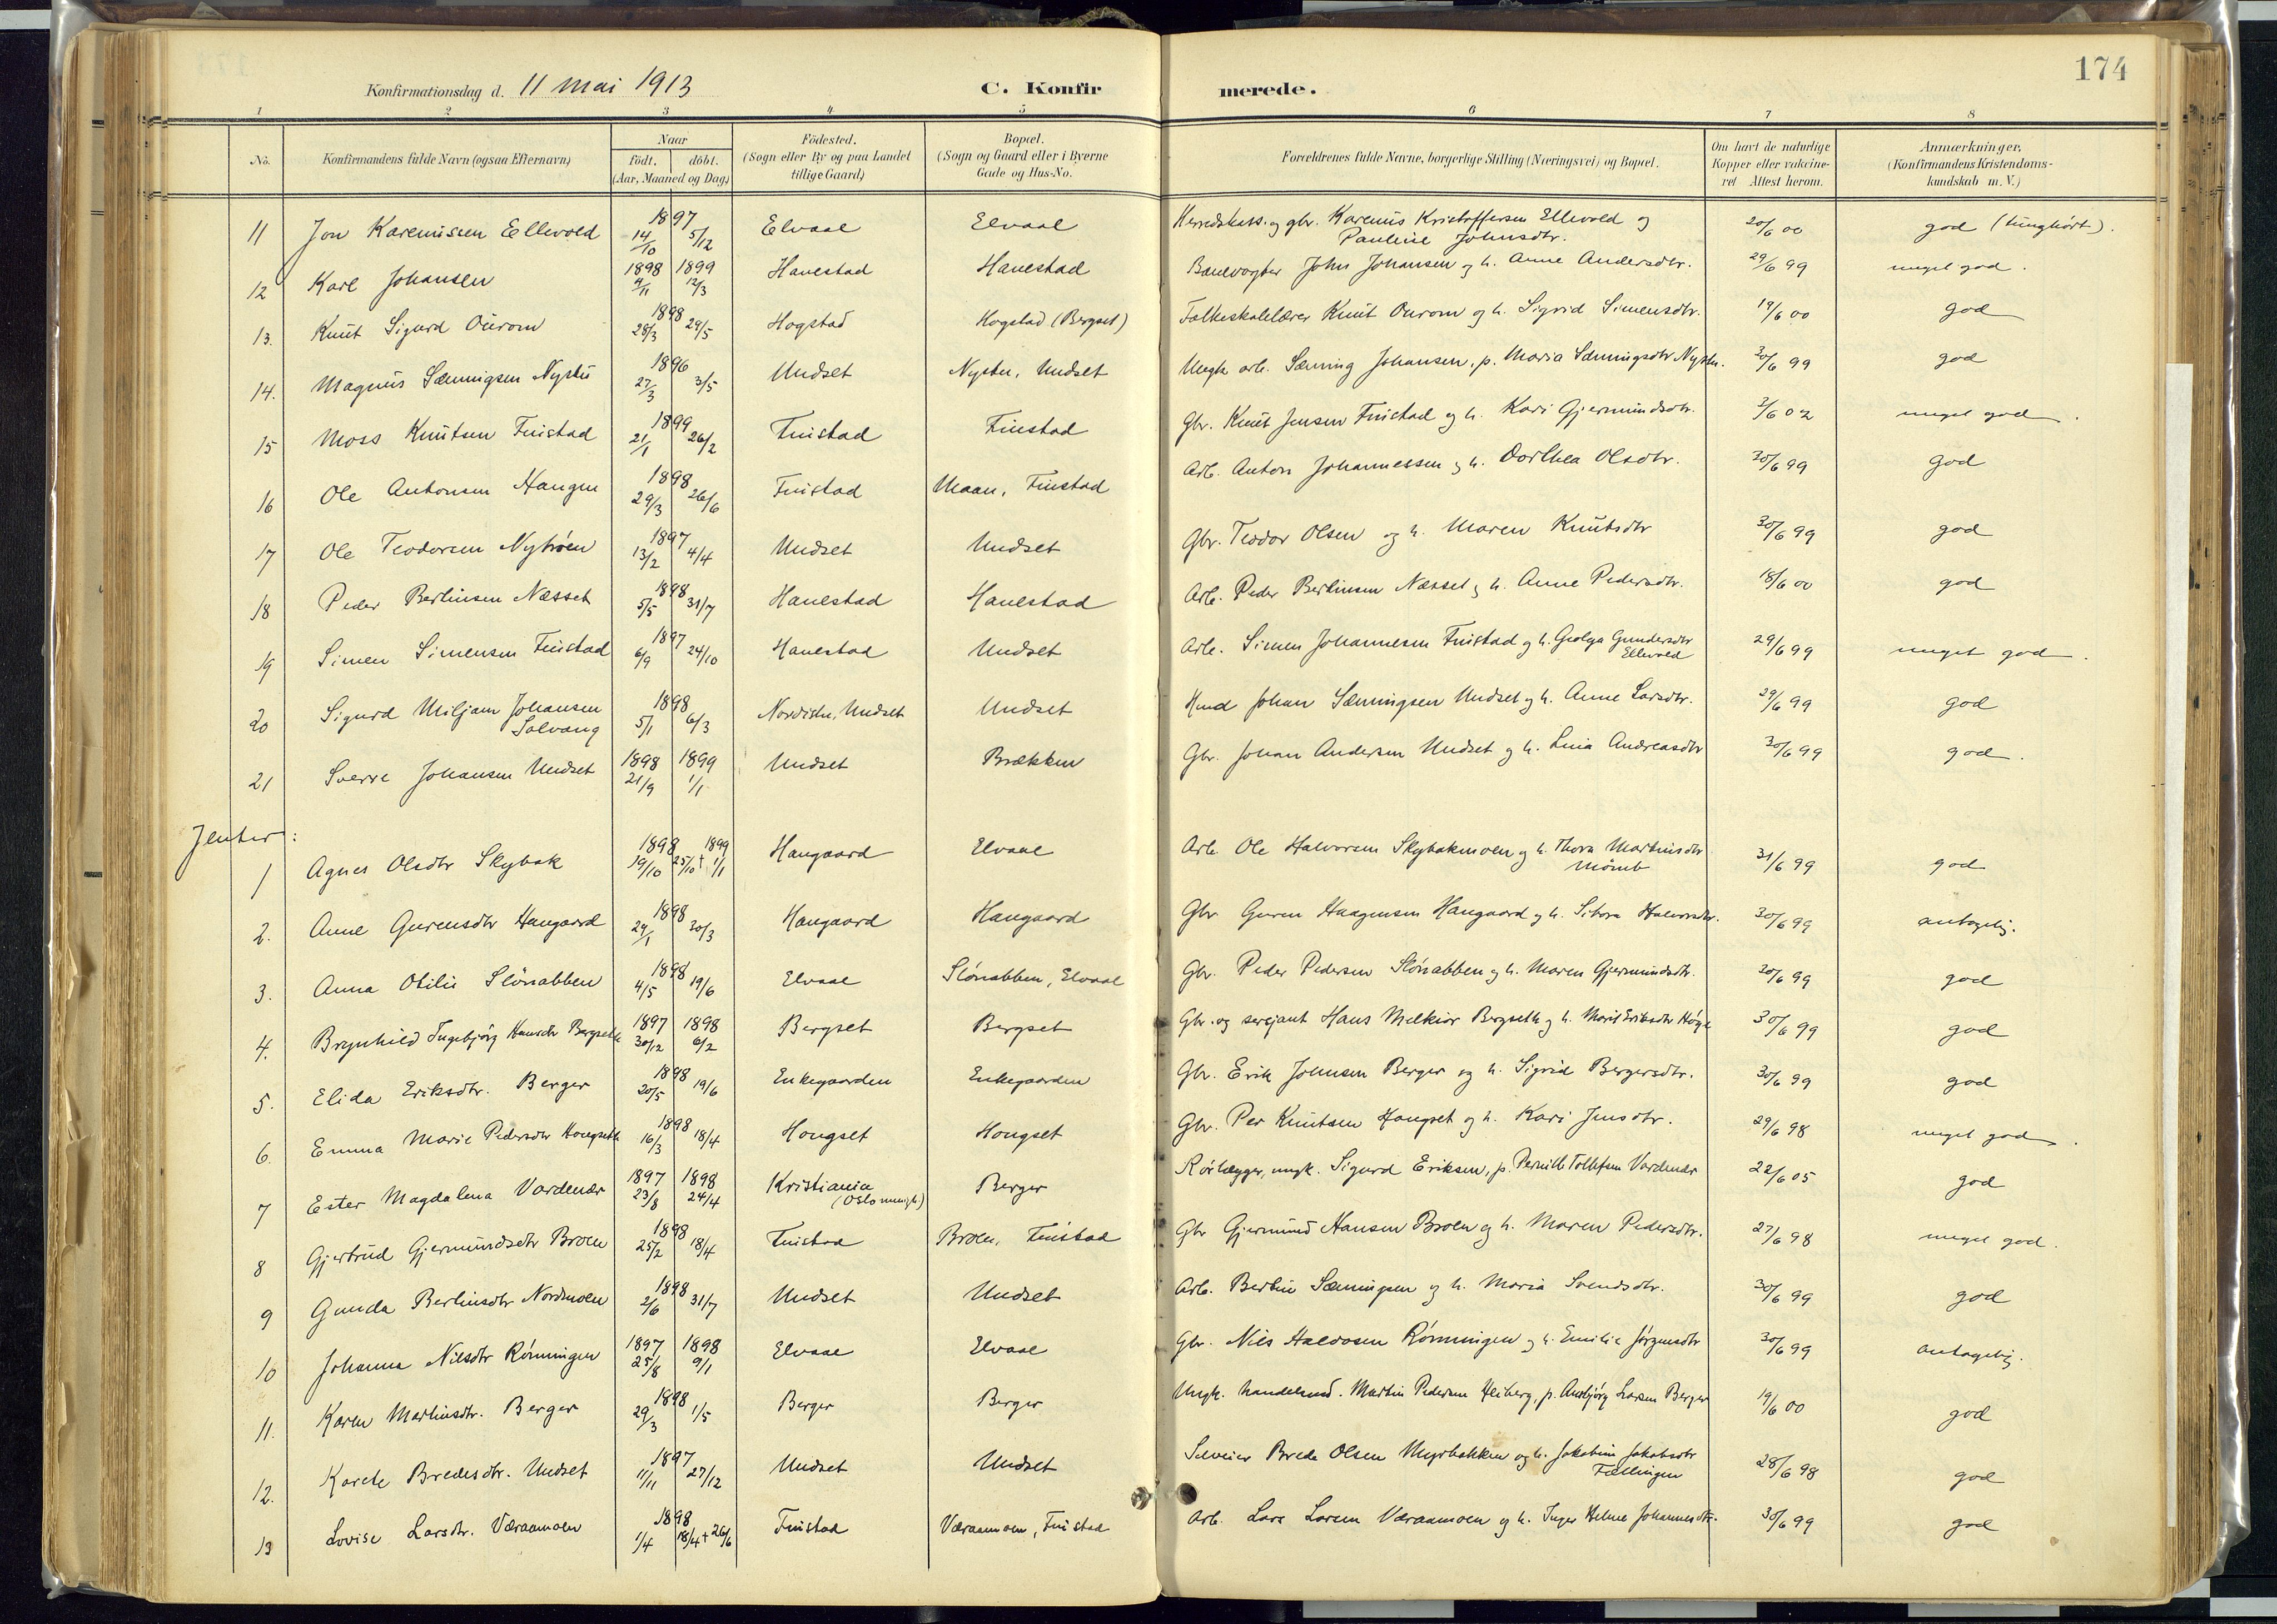 174
Konfirmationsdag d. 11 mai 1913
C. Konfirmerede.
1 2 3 4 5 6 7 8
No. Konfirmandens fulde Navn (ogsaa Efternavn) Naar födt. döbt. (Aar, Maaned og Dag) Födested. (Sogn eller By og paa Landet tillige Gaard) Bopæl. (Sogn og Gaard eller i Byerne Gade og Hus-No. Forældrenes fulde Navne, borgerlige Stilling (Næringsvei) og Bopæl. Om havt de naturlige Kopper eller vakcineret Attest herom. Anmærkninger. (Konfirmandens Kristendomskundskab m. V.)
11 Jon Kareniussen Ellevold 1897 14/10 5/12 Elvaal Elvaal Herredskass. og gbr. Karenius Kristoffersen Ellevold og Pauline Johnsdtr. 20/6 00 god (tunghört).
12 Karl Johansen 1898 9/11 1899 12/3 Hanestad Hanestad Banevogter John Johansen og h. Anne Andersdtr. 29/6 99 meget god.
13. Knut Sigurd Ourom 1898 28/3 29/5 Hogstad Hogstad (Bergset) Folkeskolelærer Knut Ourom og h. Sigrid Simensdtr. 19/6 00 god
14. Magnus Sæmingsen Nystu 1896 27/3 3/5 Undset Nystu, Undset Ungk. arb. Sæming Johansen, p. Maria Sæmingsdtr Nystu. 30/6 99 god
15 Moss Knutsen Finstad 1899 21/1 26/2 Finstad Finstad Gbr. Knut Jensen Finstad og h. Kari Gjermundsdtr. 3/6 02 meget god.
16 Ole Antonsen Haugen 1898 29/3 26/6 Finstad Moan, Finstad Arb. Anton Johannessen og h. Dorthea Olsdtr. 30/6 99 god
17 Ole Teodorsen Nytröen 1897 13/2 4/4 Undset Undset Gbr. Teodor Olsen og h. Maren Knutsdtr 30/6 99 god
18 Peder Berlinsen Næsset 1898 5/5 31/7 Hanestad Hanestad Arb. Peder Berlinsen Næsset og h. Anne Pedersdtr. 18/6 00 god
19 Simen Simensen Finstad 1897 6/9 24/10 Hanestad Undset Arb. Simen Johannesen Finstad og h. Golga Gundersdtr Ellevold 29/6 99 meget god.
20 Sigurd Miljam Johansen Solvang 1898 5/1 6/3 Nordistu, Undset Undset Hmd Johan Sæmingsen Undset og h. Anne Larsdtr. 29/6 99 god
21 Sverre Johansen Undset 1898 21/9 1899 1/1 Undset Brækken Gbr. Johan Andersen Undset og h. Lina Andreasdtr 30/6 99 god.
Jenter:
1 Agnes Olsdtr Skybak 1898 19/10 25/10 + 1899 1/1 Haugaard Elvaal Arb. Ole Halvorsen Skybakmoen og h. Thora Martinsdtr 31/6 99 god
2. Anne Gurensdtr Haugaard 1898 29/1 20/3 Haugaard Haugaard Gbr. Guren Haagensen Haugaard og h. Halvorsdtr. 30/6 99 antagelig.
3. Anna Otilie Slönabben 1898 4/5 19/6 Elvaal Slönabben, Elvaal Gbr. Peder Pedersen Slönabben og h. Maren Gjermundsdtr. 30/6 99 god
4. Brynhild Ingebjörg Hansdtr Bergseth 1897 30/12 1898 6/2 Bergset Bergset Gbr. og sersjant Hans Melkior Bergseth og h. Marit Eriksdtr 30/6 99 god
5. Elida Eriksdtr. Berger 1898 20/5 19/6 Enkegaarden Enkegaarden Gbr. Erik Johnsen Berger og h. Sigrid Bergersdtr. 30/6 99 god
6. Emma Marie Pedersdtr Hongseth 1898 16/3 18/4 Hongset Hongset Gbr. Per Knutsen Hongset og h. Kari Jensdtr. 29/6 98 meget god.
7 Ester Magdalena Vardenær 1897 23/8 1898 24/4 Kristiania (Oslo menigh.) Berger Rörlægger, ungk. Sigurd Eriksen, p. Pernille Tollefsen Vardenær 22/6 05 god
8 Gjertrud Gjermundsdtr Broen 1898 25/2 18/4 Finstad Broen, Finstad Gbr Gjermund Hansen Broen og h. Maren Pedersdtr. 27/6 98 meget god.
9 Gunda Berlinsdtr Nordmoen 1898 2/6 31/7 Undset Undset Arb. Berlin Sæmingsen og h. Maria Svendsdtr. 30/6 99 god
10 Johanna Nilsdtr Rönningen 1897 25/8 1898 9/1 Elvaal Elvaal Gbr. Nils Haldosen Rönningen og h. Emilie Jörgensdtr 30/6 99 antagelig.
11. Karen Martinsdtr. Berger 1898 29/3 1/5 Berger Berger Ungk. handelsmd. Martin Pedersen Heiberg, p. Ambjörg Larsen Berger 19/6 00 god
12. Karele Bredesdtr. Undset 1897 11/11 27/12 Undset Undset Selveier Brede Olsen Myrbakken og h. Jakobine Jakobsdtr Fællingen 28/6 98 god
13 Lovise Larsdtr. Væraamoen 1898 1/4 18/4 + 26/6 Finstad Væraamoen, Finstad Arb. Lars Larsen Væraamoen og h. Inger Helene Johannesdtr. 30/6 99 god